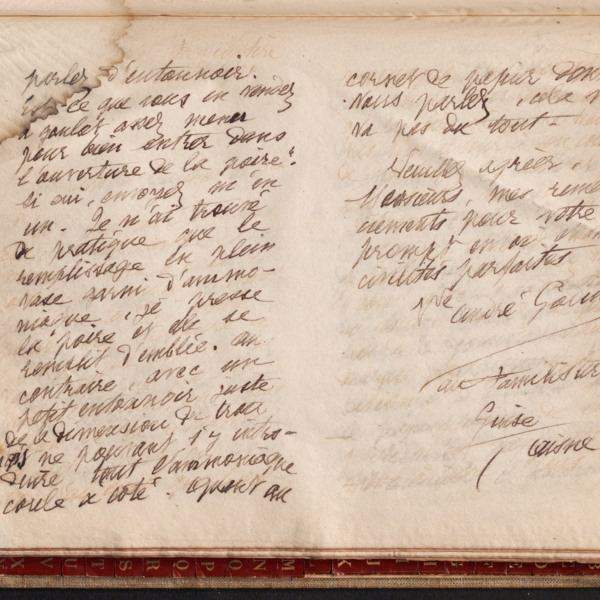 parler d'entonnoir.
est ce que vous en vendez
à goulot assez mince
pour bien entrer dans
l'ouverture de la poire?
Si oui, envoyez m'en
un. Je n'ai trouvé
de pratique que le
remplissage en plein
vase garni d'ammo-
niaque. Je presse
la poire et elle se
remplit d'emblée. au
contraire, avec un
petit entonnoir juste
de la dimension du trou
ne pouvant s'y intro-
duire tout l'ammoniaque
coule à côté. Quant au
cornet de papier dont
vous parlez, cela n
va pas du tout-
Veuillez agréer,
Messieurs, mes remer
ciements pour votre
prompt envoi
civilités parfaites
Vve andré Godin
au Familistère
Guise
Aisne
M N O P Q R S T U V X